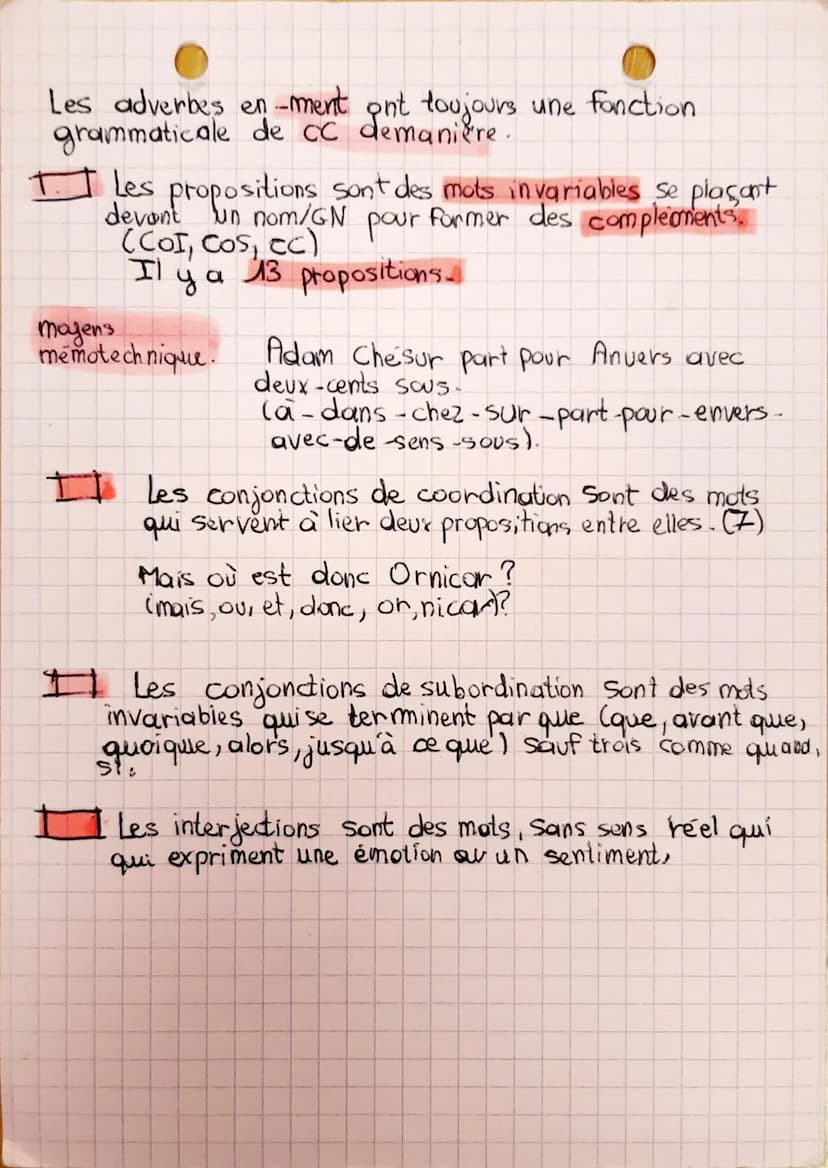 Les adverbes en -ment ont toujours une fonction
grammaticale de CC demanière.
I. Les propositions sont des mots invariables se plaçant
devant un nom/GN pour former des complements.
(COI, COS, CC)
Il y a 13 propositions.
moyens
mémotechnique.
Adam Chésur part pour Anvers avec
deux-cents sous.
(à - dans - chez - sur - part - pour - envers -
avec - de - sens - sous).
Les conjonctions de coordination sont des mots
qui servent à lier deux propositions entre elles. (7)
Mais où est donc Ornicar ?
(mais, ou, et, donc, or, nicar)?
Les conjonctions de subordination sont des mots
invariables qui se terminent par que (que, avant que,
quoique, alors, jusqu'à ce que) sauf trois comme quand,
si.
Les interjections sont des mots, sans sens réel qui
qui expriment une émotion ou un sentiment,